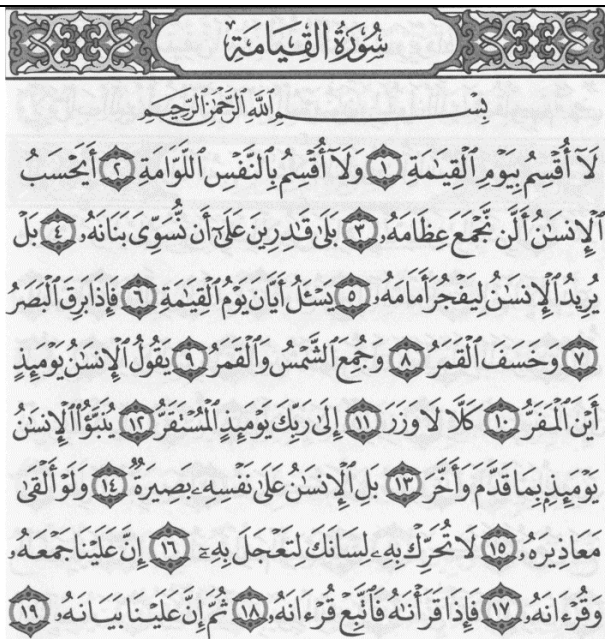 سُورَةُ القِيَامَةِ
بِسْمِ اللَّهِ الرَّحْمَٰنِ الرَّحِيمِ
لَآ أُقْسِمُ بِيَوْمِ ٱلْقِيَٰمَةِ ١ وَلَآ أُقْسِمُ بِٱلنَّفْسِ ٱللَّوَّامَةِ ٢ أَيَحْسَبُ
ٱلْإِنسَٰنُ أَلَّن نَّجْمَعَ عِظَامَهُۥ ٣ بَلَىٰ قَٰدِرِينَ عَلَىٰٓ أَن نُّسَوِّىَ بَنَانَهُۥ ٤ بَلْ
يُرِيدُ ٱلْإِنسَٰنُ لِيَفْجُرَ أَمَامَهُۥ ٥ يَسْـَٔلُ أَيَّانَ يَوْمُ ٱلْقِيَٰمَةِ ٦ فَإِذَا بَرِقَ ٱلْبَصَرُ
٧ وَخَسَفَ ٱلْقَمَرُ ٨ وَجُمِعَ ٱلشَّمْسُ وَٱلْقَمَرُ ٩ يَقُولُ ٱلْإِنسَٰنُ يَوْمَئِذٍ
أَيْنَ ٱلْمَفَرُّ ١٠ كَلَّا لَا وَزَرَ ١١ إِلَىٰ رَبِّكَ يَوْمَئِذٍ ٱلْمُسْتَقَرُّ ١٢ يُنَبَّؤُا۟ ٱلْإِنسَٰنُ
يَوْمَئِذٍۭ بِمَا قَدَّمَ وَأَخَّرَ ١٣ بَلِ ٱلْإِنسَٰنُ عَلَىٰ نَفْسِهِۦ بَصِيرَةٌ ١٤ وَلَوْ أَلْقَىٰ
مَعَاذِيرَهُۥ ١٥ لَا تُحَرِّكْ بِهِۦ لِسَانَكَ لِتَعْجَلَ بِهِۦٓ ١٦ إِنَّ عَلَيْنَا جَمْعَهُۥ
وَقُرْءَانَهُۥ ١٧ فَإِذَا قَرَأْنَٰهُ فَٱتَّبِعْ قُرْءَانَهُۥ ١٨ ثُمَّ إِنَّ عَلَيْنَا بَيَانَهُۥ ١٩